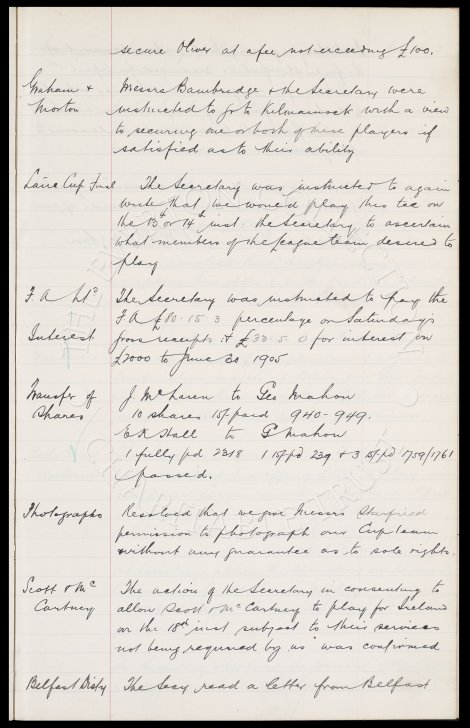 secure Oliver at a fee not exceeding £100.
Graham & Messrs Bainbridge & the Secretary were
Morton instructed to go to Kilmarnock with a view
to securing one or both of these players if
satisfied as to their ability
The Secretary was instructed to again
write that we would play this tie on
the 13th or 14th inst: the Secretary to ascertain
what members of the League team desired to
play
F A Ld The Secretary was instructed to pay the
F A £80.15.3 percentage on Saturday's
Interest gross receipts & £33.5.0 for interest on
£2000 to June 30 1905
Transfer of J. McLaren to Geo Mahon
Shares 10 shares 15/- paid 940-949.
E K Hall to G Mahon
1 fully pd 2318 1 15/- pd 239 & 3 5/- pd 1759/1761
passed.
Photographs Resolved that we give Messrs
permission to photograph our Cup team
without any guarantee as to sole rights.
Scott & Mc The action of the Secretary in consenting to
Cartney allow Scott & McCartney to play for Ireland
on the 18th inst subject to their services
not being required by us was confirmed
Belfast Disty The Secy read a letter from Belfast